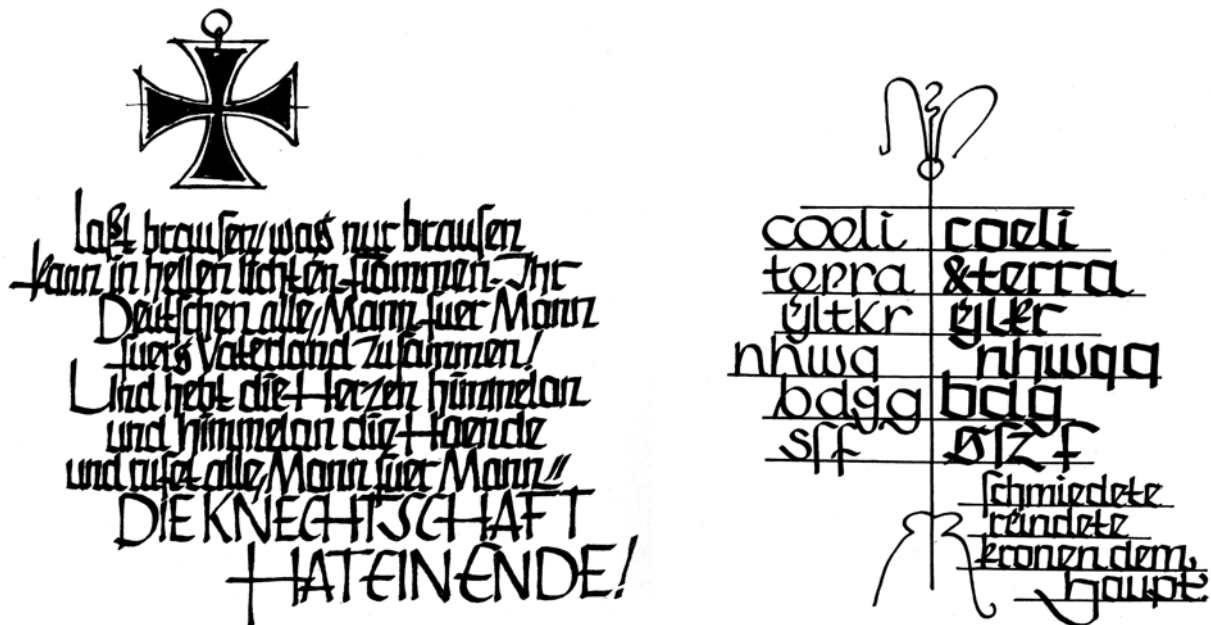 Laßt brausen, was nur brausen
kann in hellen lichten Flammen. Ihr
Deutschen alle, Mann fuer Mann
fuers Vaterland zusammen!
Und hebt die Herzen himmelan
und himmelan die Haende
und rufet alle, Mann fuer Mann,,
DIE KNECHTSCHAFT
HAT EIN ENDE!
coeli coeli
terra & terra
ÿltkr ÿltkr
nhwq nhwqq
bdgg bdg
sſf sſzf
schmiedete
reindete
kronen dem,
haupt.